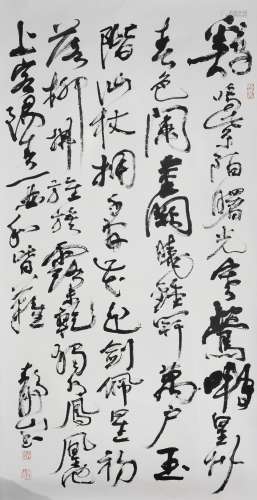 鷄鳴紫陌曙光寒鶯囀皇州
春色闌金闕曉鐘開萬户玉
階仙仗擁千官花迎劍佩星初
落柳拂旌旗露未乾獨有鳳凰池
上客陽春一曲和皆難